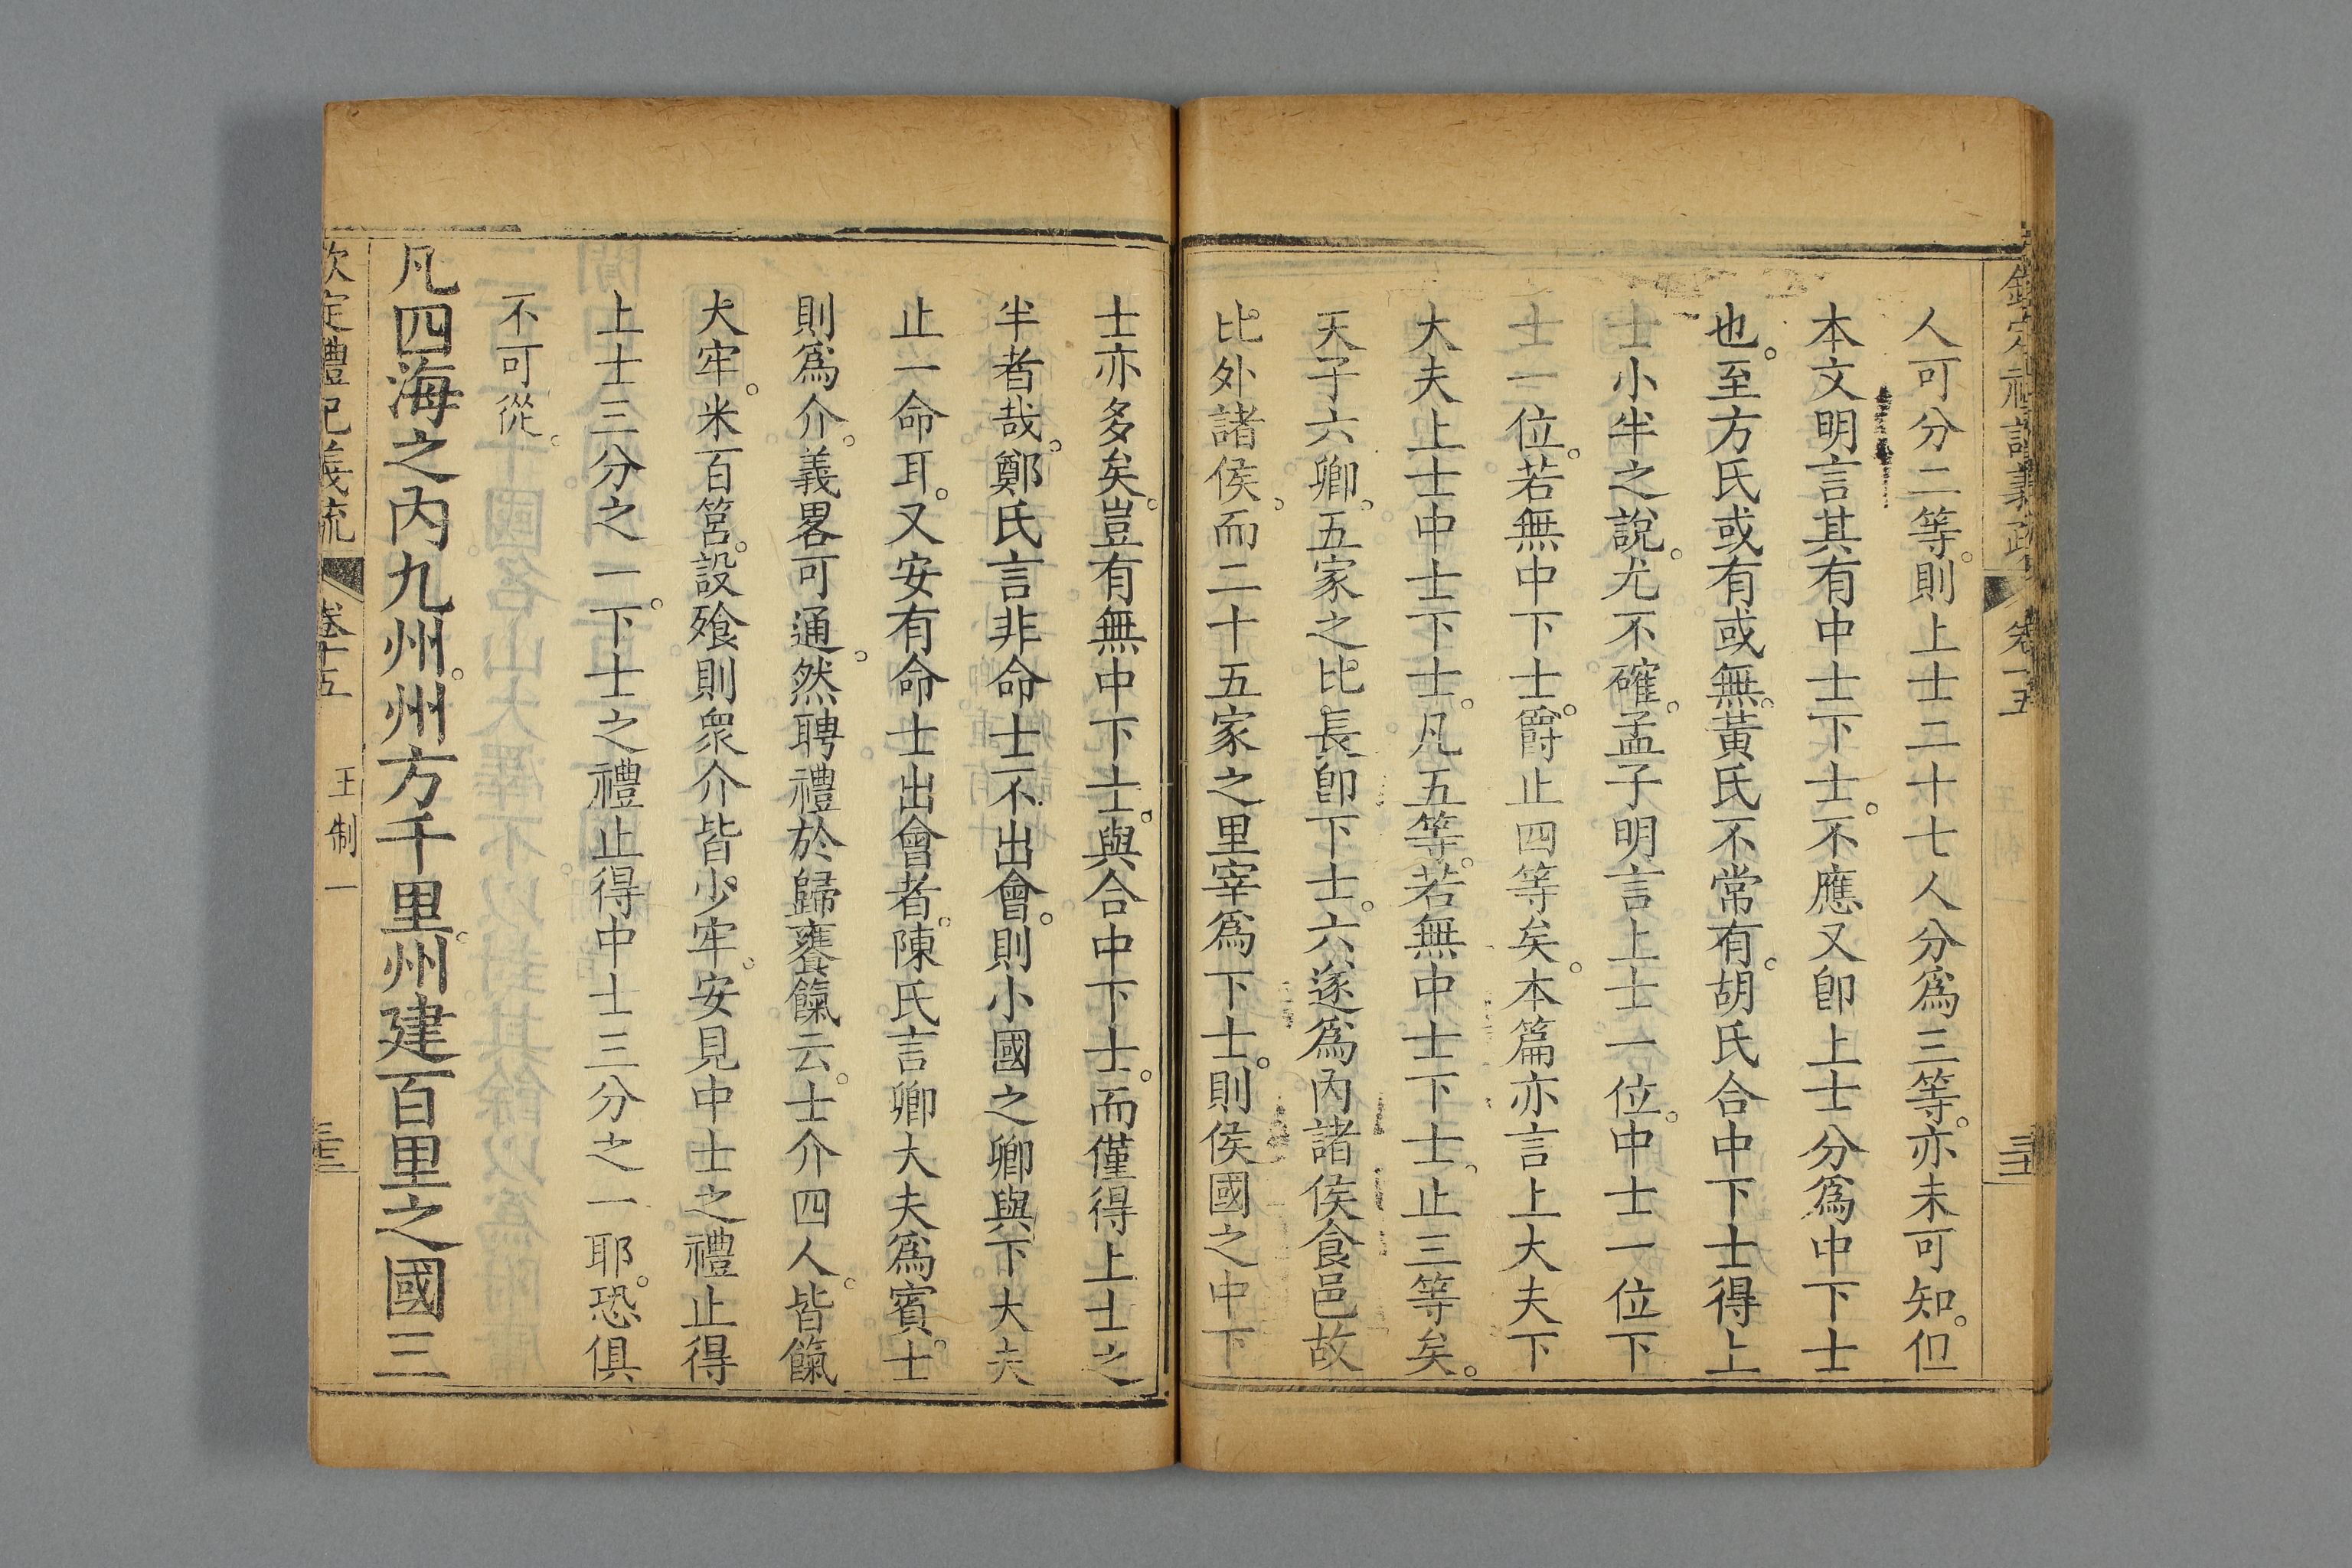 欽定禮記義疏 卷十五
人可分二等。則上士二十七人分爲三等。亦未可知。但
本文明言其有中士下士。不應又卽上士分爲中下士
也。至方氏或有或無。黃氏不常有。胡氏合中下士得上
士小半之說。尤不確。孟子明言上士一位。中士一位下
士一位。若無中下士。爵止四等矣。本篇亦言上大夫下
大夫上士中士下士。凡五等。若無中士下士。止三等矣。
天子六卿。五家之比長卽下士。六遂爲內諸侯食邑故
比外諸侯。而二十五家之里宰爲下士。則侯國之中下
士亦多矣。豈有無中下士。與合中下士。而僅得上士之
半者哉。鄭氏言非命士不出會。則小國之卿與下大夫
止一命耳。又安有命士出會者。陳氏言卿大夫爲賓。士
則爲介。義畧可通。然聘禮於歸饔餼云。士介四人。皆餼
大牢。米百筥。設飧則衆介皆少牢。安見中士之禮止得
上士三分之一。下士之禮止得中士三分之一耶。恐俱
不可從。
凡四海之內九州。州方千里。州建百里之國三
欽定禮記義疏 卷十五 王制一